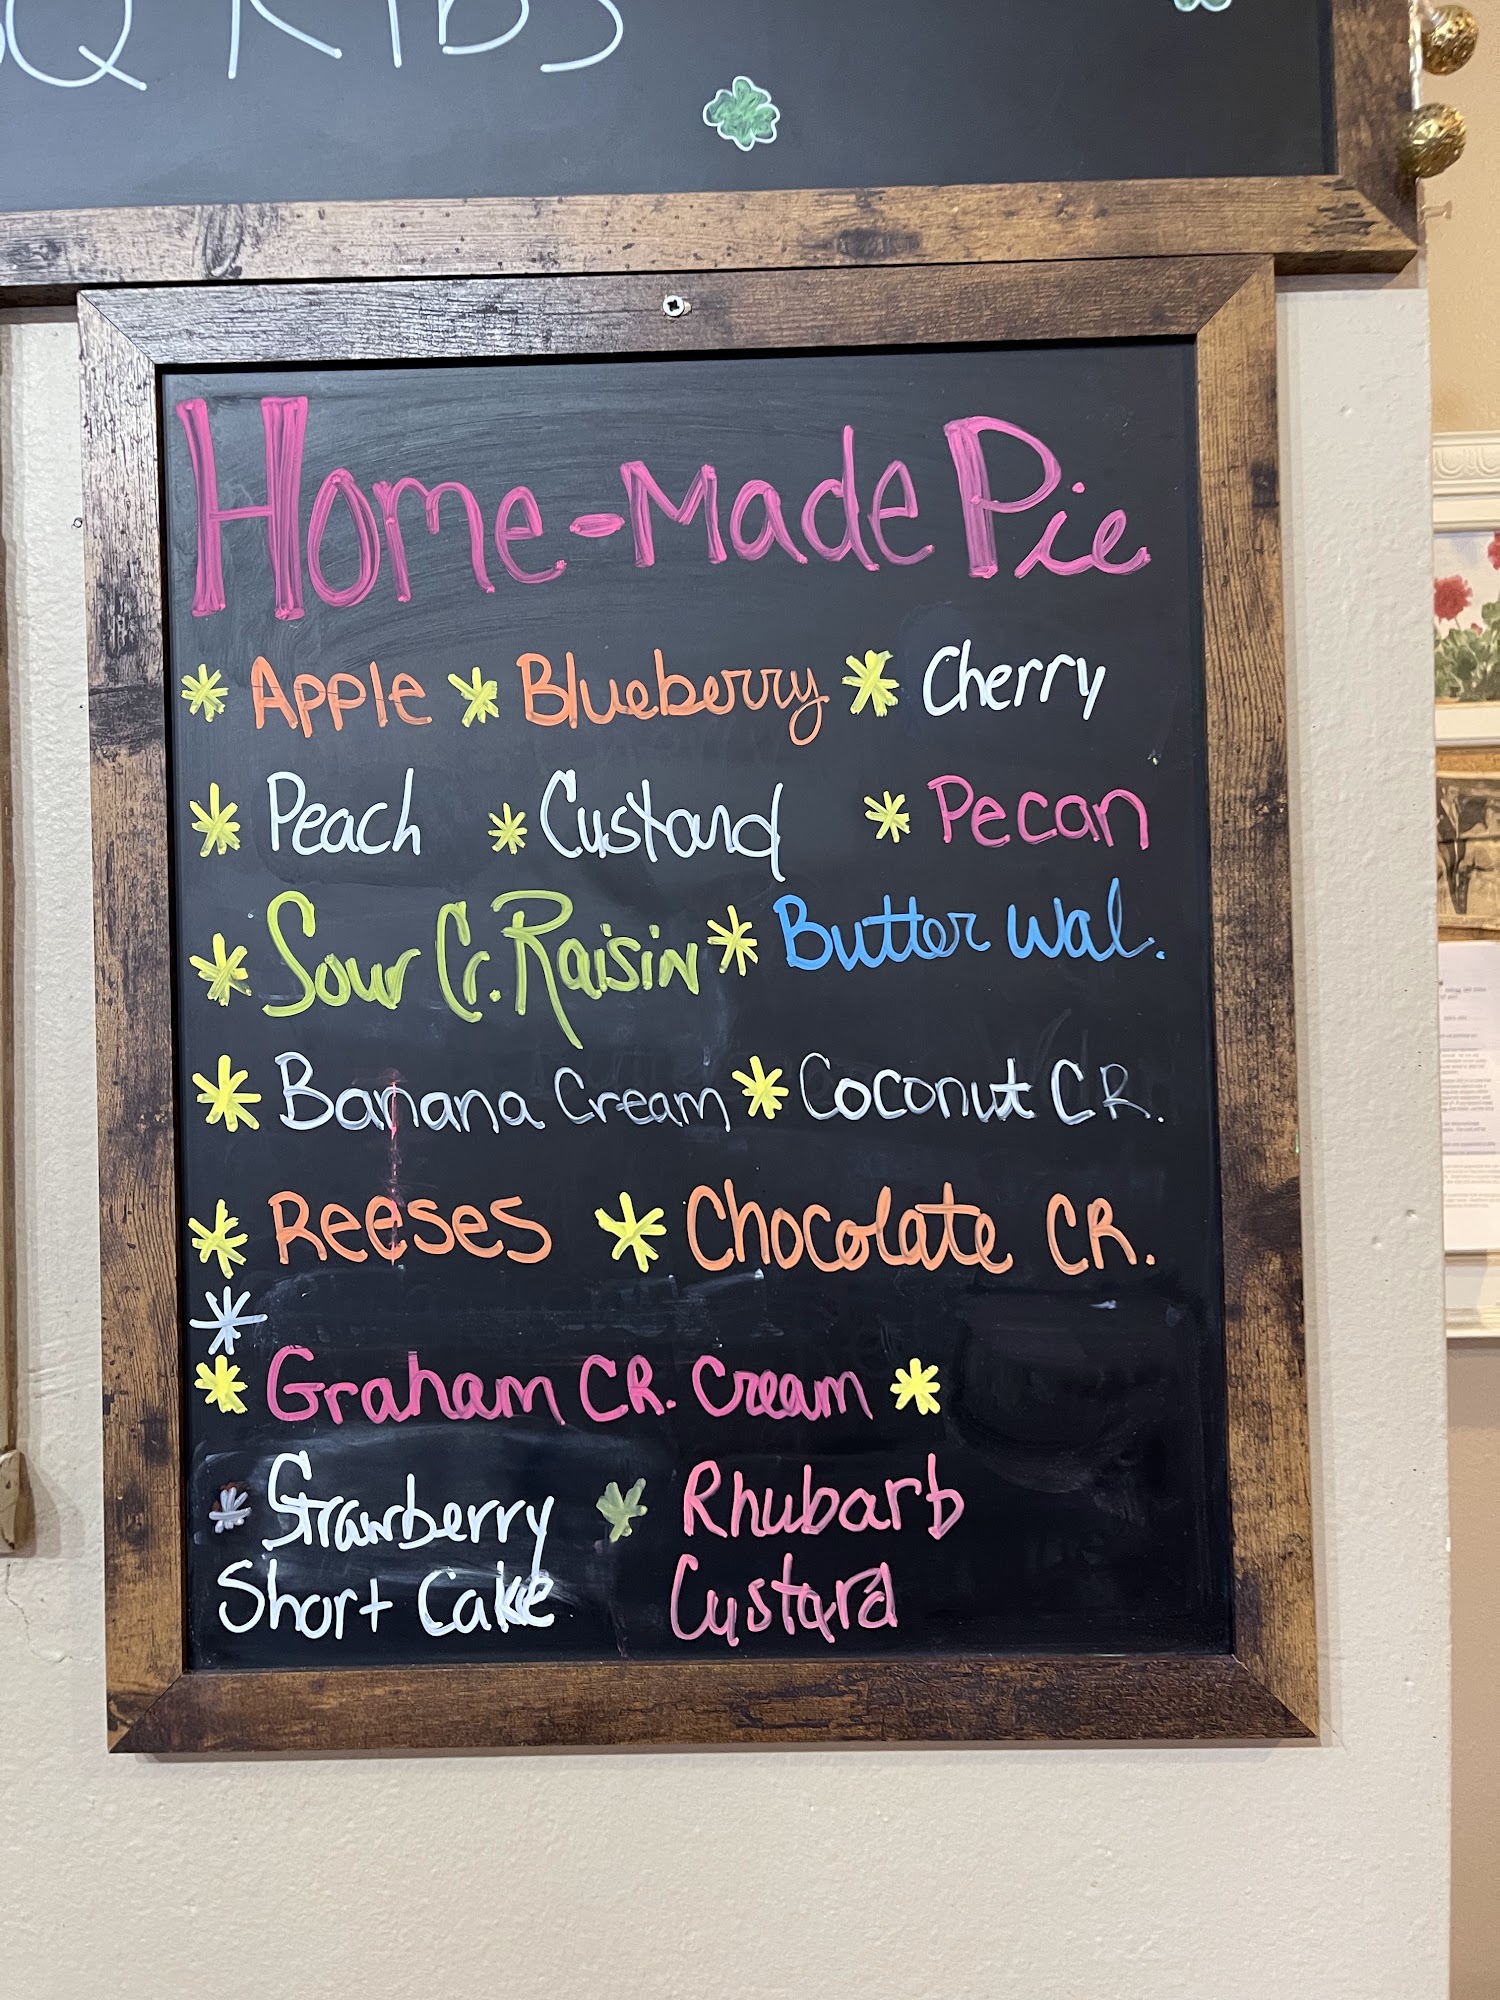 RIBS
Home-Made Pie
* Apple * Blueberry * Cherry
* Peach * Custard * Pecan
* Sour Cr. Raisin * Butter Wal.
* Banana Cream * Coconut CR.
* Reeses * Chocolate CR.
*
* Graham CR. Cream *
* Strawberry * Rhubarb
Short Cake Custard